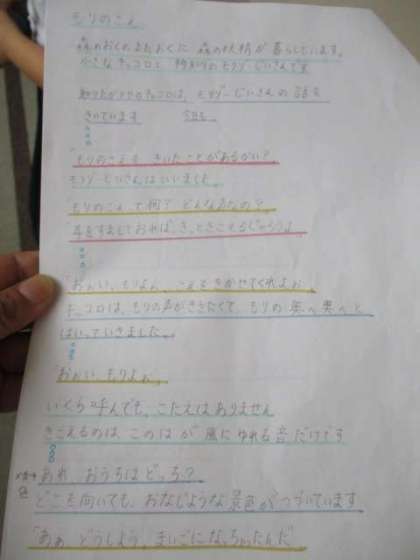 もりのこえ
森のおくのまたおくに 森の妖精が暮らしています。
小さなキッコロと 物知りのモリゾーじいさんです
知りたがりやのキッコロは、モリゾーじいさんの 話を
きいています 今日も
「もりのこえを きいたことがあるかい？」
モリゾーじいさんはいいました
「もりのこえって何？ どんなこえなの？」
「耳をすましておれば、きっときこえるじゃろうよ」
「おおい、もりよぉ、こえをきかせてくれよぉ」
キッコロは、もりの声がききたくて、もりの 奥へ奥へと
はいっていきました。
「おおい もりよぉ」
いくら呼んでも、こたえはありません
きこえるのは このはが 風に ゆれる 音だけです
あれ、おうちはどっち？
どこを向いても、おなじような景色がつづいています
「あぁ どうしよう、まいごになっちゃったんだ